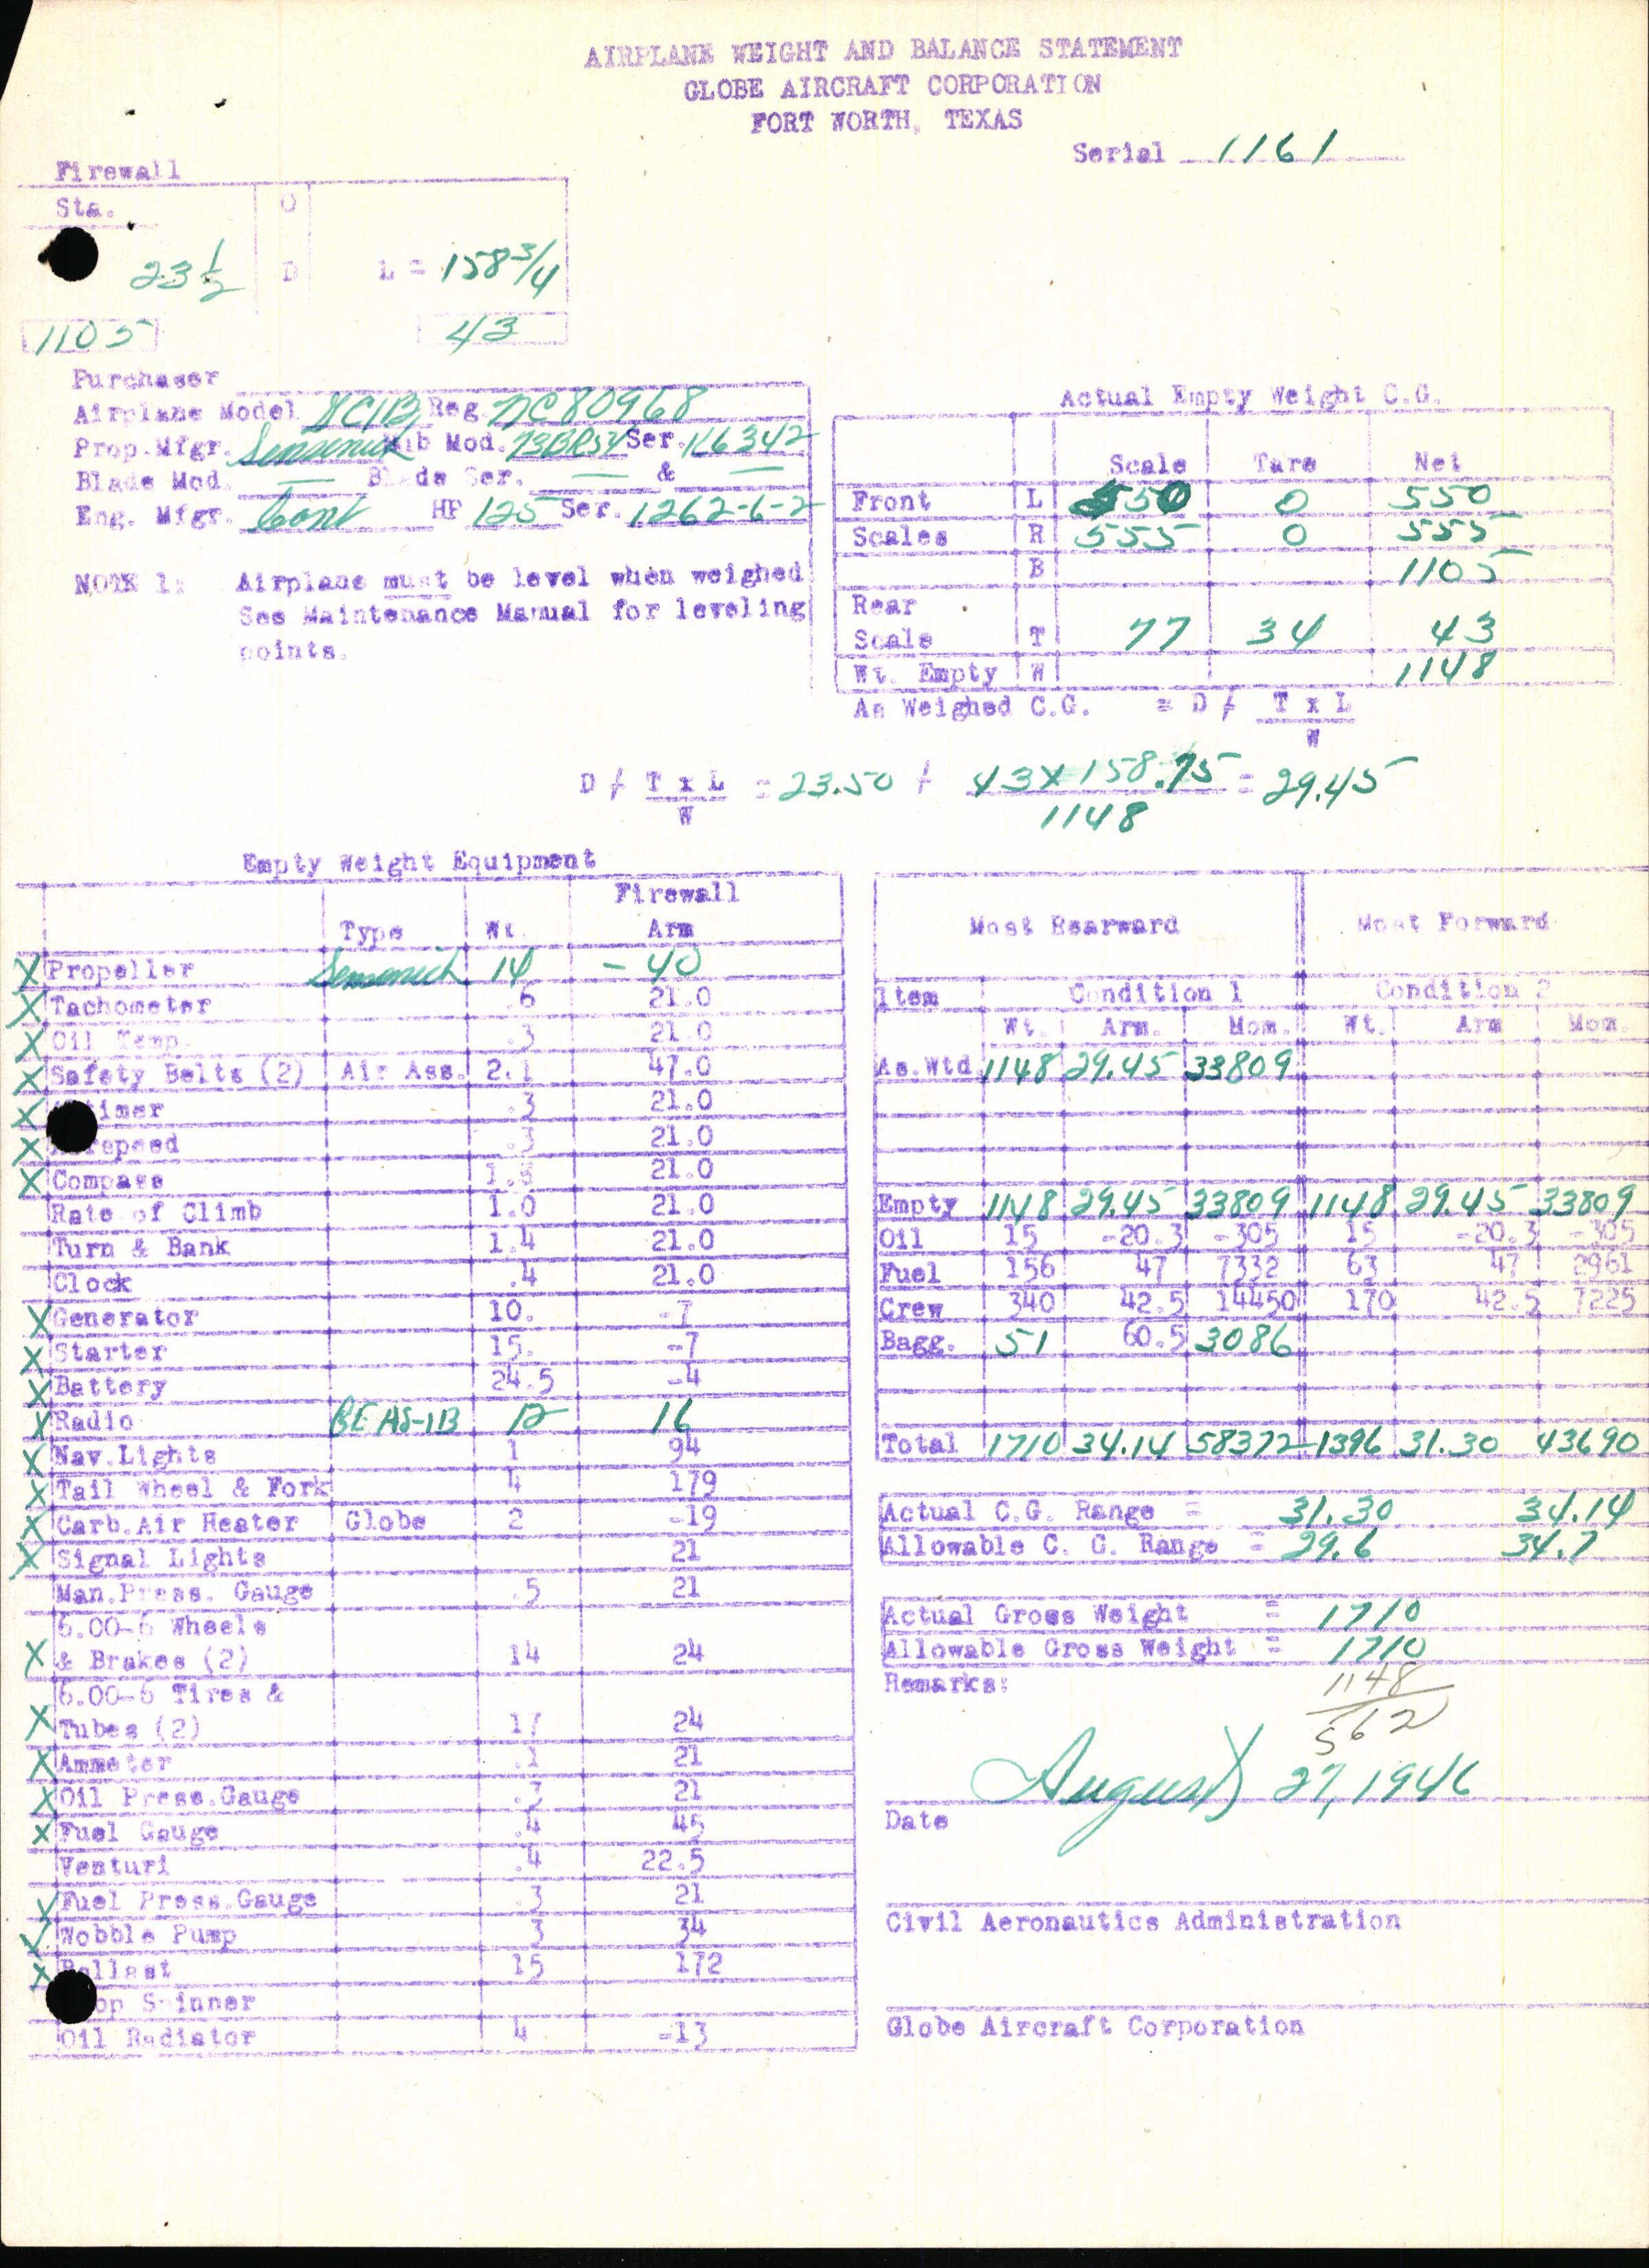 AIRPLANE WEIGHT AND BALANCE STATEMENT
GLOBE AIRCRAFT CORPORATION
FORT WORTH, TEXAS
Serial 1161
Firewall
Sta. O
23 1/2 D L = 158 3/4
1105 43
Purchaser
Airplane Model GC1B Reg. NC80968
Prop. Mfgr. Sensenich Hub Mod. Ser. K6342
Blade Mod. — Blade Ser. — & —
Eng. Mfgr. Cont HP 125 Ser. 1262-6-2
NOTE 1: Airplane must be level when weighed
See Maintenance Manual for leveling
points.
Actual Empty Weight C.G.
Scale Tare Net
Front L 550 0 550
Scales R 555 0 555
B 1105
Rear
Scale T 77 34 43
Wt. Empty W 1148
As Weighed C.G. = D / T x L
W
D / T x L = 23.50 / 43 x 158.75 = 29.45
W 1148
Empty Weight Equipment
Firewall
Type Wt. Arm
X Propeller Sensenich 14 -40
X Tachometer .6 21.0
X Oil Temp. .3 21.0
X Safety Belts (2) Air Ass. 2.1 47.0
X timer .3 21.0
X respeed .3 21.0
X Compass 21.0
Rate of Climb 1.0 21.0
Turn & Bank 1.4 21.0
Clock .4 21.0
X Generator 10. -7
X Starter 15. -7
X Battery 24.5 -4
X Radio BE AS-1B 12 16
X Nav. Lights 1 94
X Tail Wheel & Fork 4 179
X Carb. Air Heater Globe 2 -19
X Signal Lights 21
Man. Press. Gauge .5 21
6.00-6 Wheels
X & Brakes (2) 14 24
6.00-6 Tires &
X Tubes (2) 17 24
X Ammeter .1 21
X Oil Press. Gauge .3 21
X Fuel Gauge .4 45
Venturi .4 22.5
X Fuel Press. Gauge .3 21
X Wobble Pump 3 34
X Ballast 15 172
op Spinner
Oil Radiator 4 -13
Most Rearward Most Forward
Item Condition 1 Condition 2
Wt. Arm. Mom. Wt. Arm Mom.
As. Wtd 1148 29.45 33809
Empty 1148 29.45 33809 1148 29.45 33809
Oil 15 -20.3 -305 15 -20.3 -305
Fuel 156 47 7332 63 47 2961
Crew 340 42.5 14450 170 42.5 7225
Bagg. 51 60.5 3086
Total 1710 34.14 58372 1396 31.30 43690
Actual C.G. Range = 31.30 34.14
Allowable C. G. Range = 29.6 34.7
Actual Gross Weight = 1710
Allowable Gross Weight = 1710
Remarks: 1148
562
August 27, 1946
Date
Civil Aeronautics Administration
Globe Aircraft Corporation